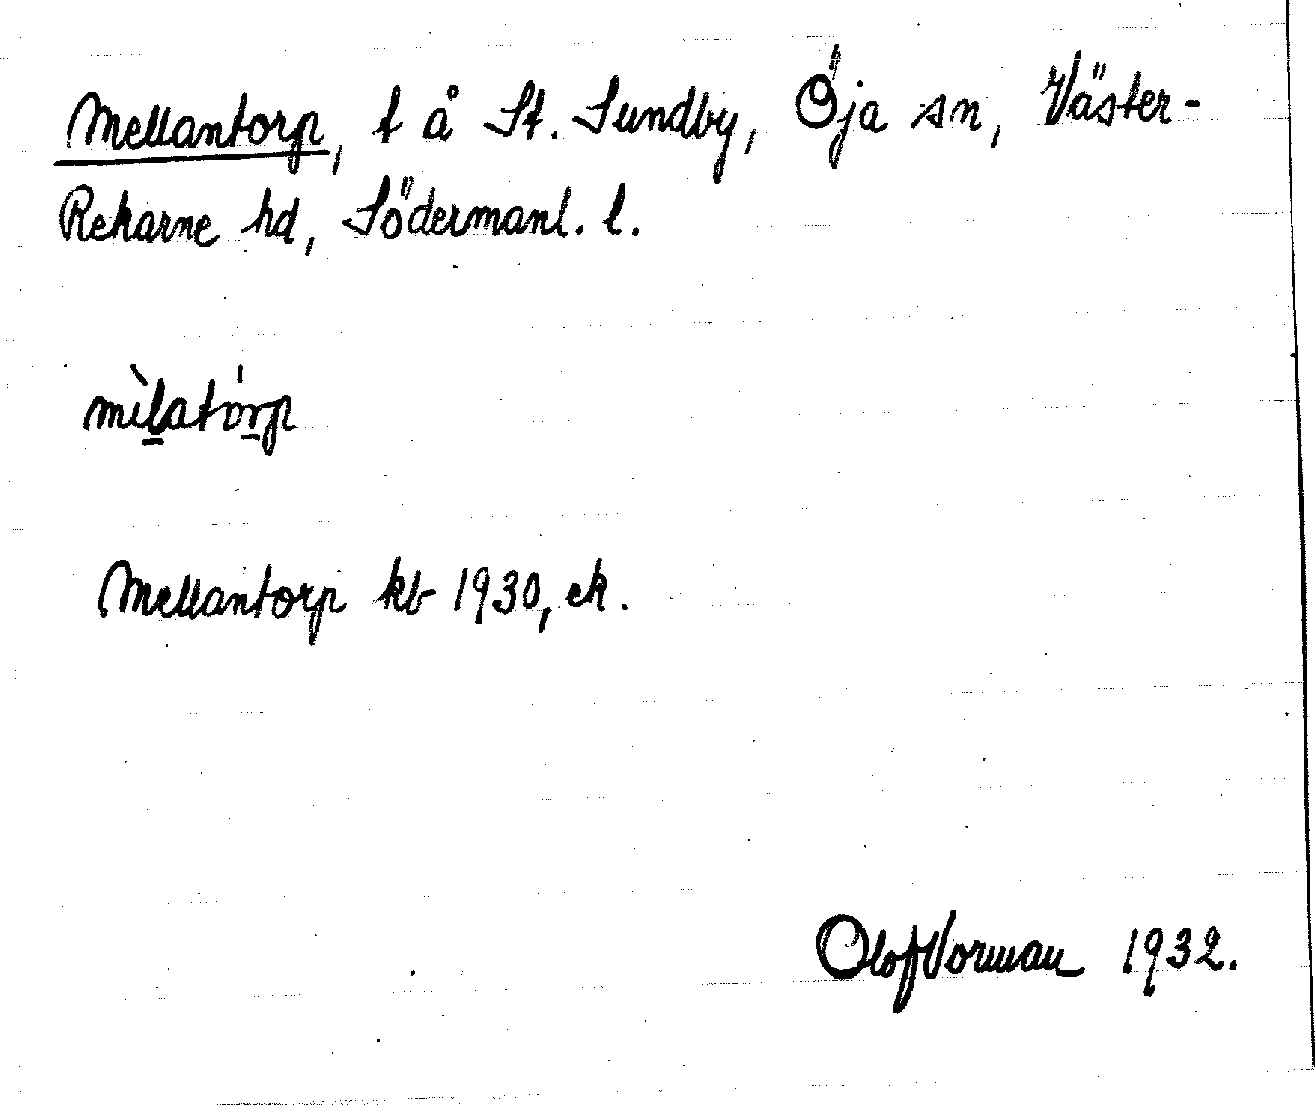 Mellantorp, t å St. Sundby, Öja sn, Väster-
Rekarne hd, Södermanl. l.
mìlatórp
Mellantorp kb 1930, ek.
Olof Vorman 1932.